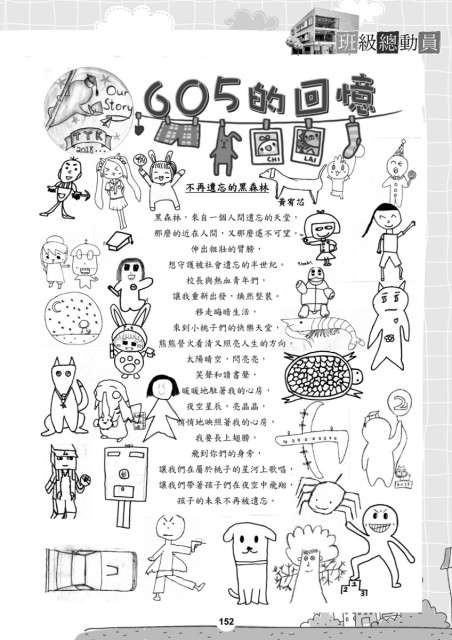 班級總動員
Our
Story
TTK
2018...
605的回憶
CHI
LAI
不再遺忘的黑森林
黃宥芯
黑森林，來自一個人間遺忘的天堂，
那麼的近在人間，又那麼遙不可望。
伸出粗壯的臂膀，
想守護被社會遺忘的半世紀。
校長與熱血青年們，
讓我重新出發，煥然整裝。
移走晦暗生活，
來到小桃子們的快樂天堂，
熊熊營火看清又照亮人生的方向。
太陽晴空，閃亮亮，
笑聲和讀書聲，
暖暖地駐著我的心房，
夜空星辰，亮晶晶，
悄悄地映照著我的心房，
我要長上翅膀，
飛到你們的身旁，
讓我們在屬於桃子的星河上歌唱，
讓我們帶著孩子們在夜空中飛翔，
孩子的未來不再被遺忘。
2
2
1
3
152